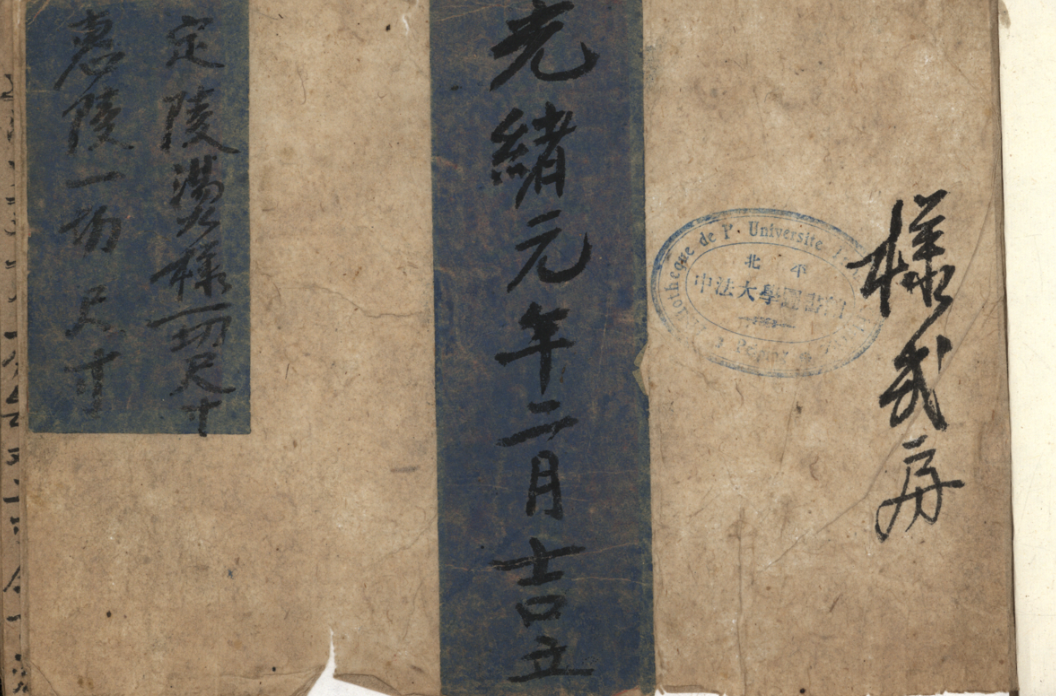 樣式房
光緒元年二月吉立
定陵燙樣一切尺寸
惠陵一切尺寸
Bibliothèque de l'Université
北平
中法大學圖書館